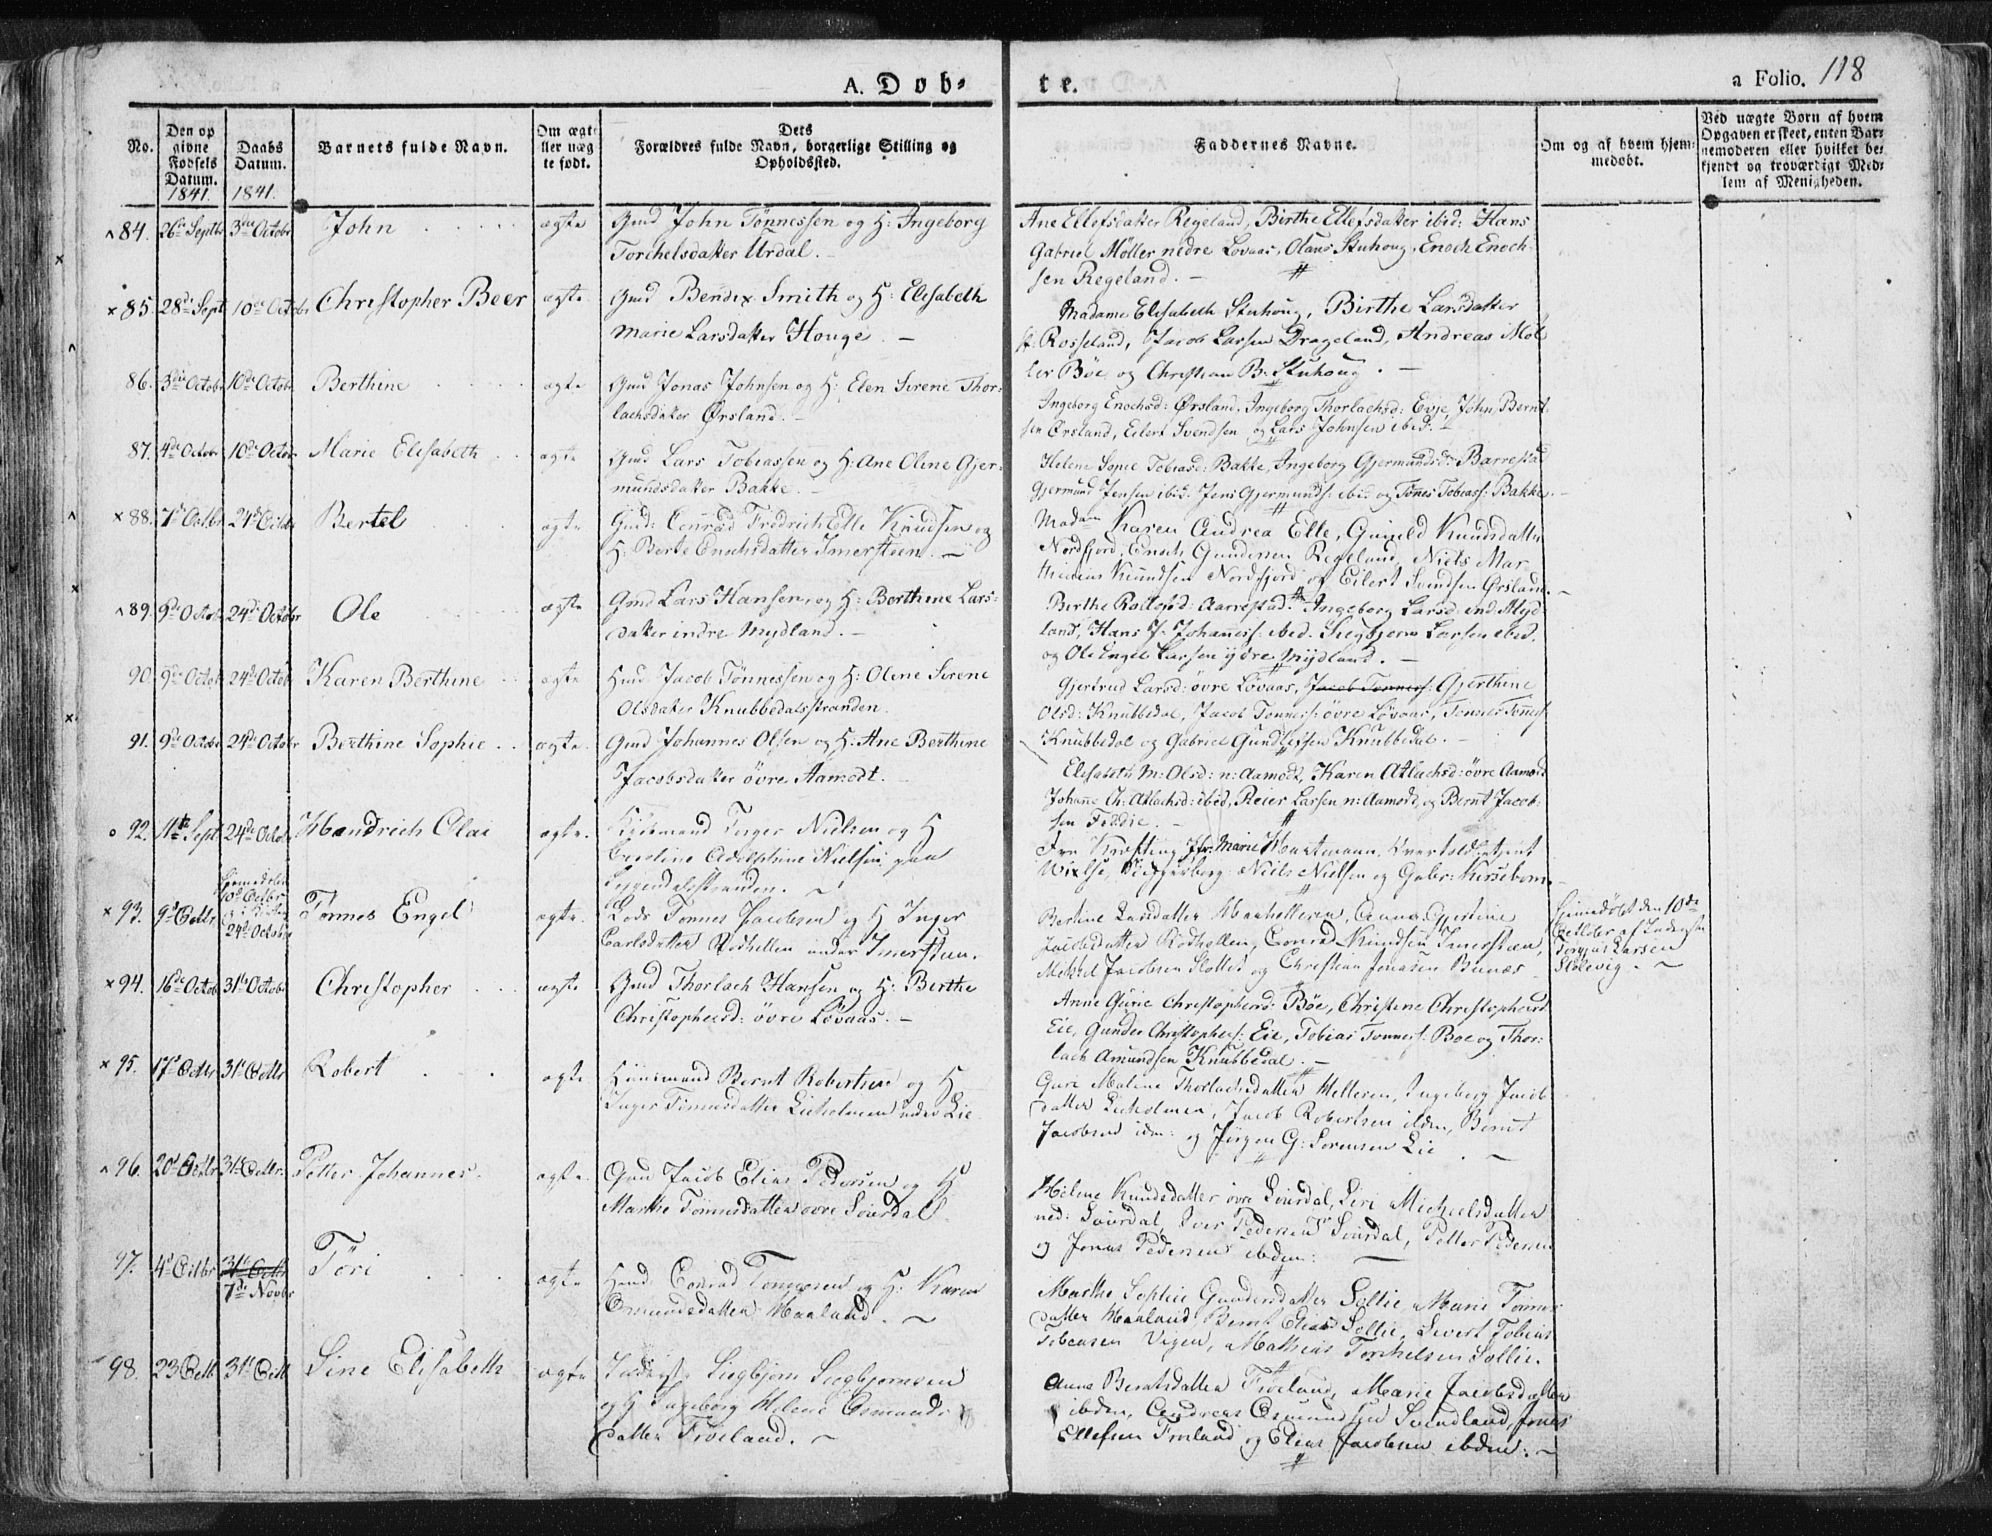 A. Dob-
te.
a Folio. 118
No.
Den op
givne
Fødsels
Datum.
1841.
Daabs
Datum.
1841.
Barnets fulde Navn.
Om ægt-
ller uæg
te født.
Dets
Forældres fulde Navn, borgerlige Stilling og
Opholdssted.
Faddernes Navne.
Om og af hvem hjem-
medøbt.
Ved uægte Børn af hvem
Opgaven er skeet, enten Bar-
nemoderen eller hvilket be-
kjendt og troværdigt Med-
lem af Menigheden.
84. 26de Septbr 3die Octobr John ægte Gmd John Tønnessen og H: Ingeborg
Torchelsdatter Urdal.
Ane Ellefsdatter Regeland, Birthe Ellefsdatter ibid: Hans
Gabriel Møller nedre Lovaas, Olaus Stuhoug, Enoch Enoch-
sen Regeland.
85. 28de Sept 10de Octobr Christopher Beer ægte Gmd Bendix Smith og H: Elisabeth
Marie Larsdatter Houge.
Madame Elisabeth Stuhoug, Birthe Larsdatter
st: Rosseland, Jacob Larsen Drageland, Andreas Møl
ler Bøe og Christian B. Stuhoug.
86. 3die Octobr 10de Octobr Berthine ægte Gmd Jonas Johnsen og H: Elen Serene Thor-
lachsdater Ørsland.
Ingeborg Enochsd: Ørsland, Ingeborg Thorlachsd: Evje, John Bernt
sen Ørsland, Eilert Svendsen og Lars Johnsen ibid.
87. 4de Octobr 10de Octobr Marie Elisabeth ægte Gmd Lars Tobiassen og H: Ane Oline Gjer-
mundsdatter Bakke.
Helene Sopie Tobiasd: Bakke, Ingeborg Gjermundsd: Barrestad
Gjermund Jensen ibid. Jens Gjermunds: ibid og Tønes Tobias: Bakke.
88. 7de Octbr 24de Octbr Bertel ægte Gmd: Conrad Fredrich Elle Knudsen og
H: Berte Enochsdatter Imersteen.
Madam Karen Andrea Elle, Gunild Knudsdatter
Nordfjord, Enoch Gundersen Regeland, Niels Mar
thinius Knudsen Nordfjord og Eilert Svendsen Ørsland.
89. 9de Octobr 24de Octobr Ole ægte Gmd Lars Hansen, og H: Berthine Lars-
datter indre Mydland.
Birthe Rollefsd: Aarrestad. Ingeborg Larsd: ind: Myd
land, Hans J. Johaness: ibid. Siegbjørn Larsen ibid.
og Ole Engel Larsen ydre Mydland.
90. 9de Octobr 24de Octobr Karen Berthine ægte Hmd Jacob Tønnessen og H: Oline Serene
Olsdater Knubbedalsstranden.
Gjertrud Larsd: øvre Løvaas, Jacob Tønness: Gjerthine
Olsd: Knubbedal, Jacob Tønness: øvre Løvaas, Tønnes Tønes:
Knubbedal og Gabriel Gundersen Knubbedal.
91. 9de Octobr 24de Octobr Berthine Sophie ægte Gmd Johannes Olsen og H: Ane Berthine
Jacobsdatter øvre Aamodt.
Elisabeth M: Olsd: n: Aamodt, Karen Atlachsd: øvre Aamodt
Johane Ch: Atlachsd: ibid, Reier Larsen n: Aamodt, og Bernt Jacob-
sen Fidje.
92. 11te Sept 24de Octobr Hendrich Olai ægte Kjøbmand Torger Nielsen og H
Caroline Adolphine Nielsen paa
Soggendalsstranden.
Fru Krøfting, Jfr: Marie Hartmann,
Niels Nielsen og Gabr: Kirsebom.
93. 9de Octbr
Hjemedøbt
10de Octbr
24de Octobr
Tønnes Engel ægte Lods Tønnes Jacobsen og H Inger
Carlsdatter Rødhellen under Imersteen.
Bertine Larsdatter Aanhelleren, Anna Gjertine
Jacobsdatter Rødhellen, Conrad Knudsen Imersteen,
Mikkel Jacobsen Slottet og Christian Jonassen Bunæs
Hjemedøbt den 10de
Octbr af
Torgius Larsen
Stølevig.
94. 16de Octob 31te Octobr Christopher ægte Gmd Thorlach Hansen og H: Berthe
Christophersd: øvre Løvaas.
Anne Gurie Christophersd: Bøe, Christine Christophersd
Eie, Gunder Christophers: Eie, Tobias Tønness: Boe og Thor-
lach Amundsen Knubbedal.
95. 17de Octbr 31te Octbr Robert ægte Huusmand Bernt Robertsen og H
Inger Tønnesdatter Lieholmen under Lie.
Guri Malene Thorlachsdatter Helleren, Ingeborg Jacob
datter Lieholmen, Jacob Robertsen ibdm, Bernt
Jacobsen idm: og Jørgen G: Sørensen Lie
96. 20de Octbr 31te Octbr. Petter Johannes. ægte Gmd Jacob Elias Pedersen og H
Marthe Tønnesdatter øvre Suurdal.
Helene Knudsdatter øvre Suurdal, Siri Michelsdatter
ned: Suurdal, Iver Pedersen Suurdal, Petter Pedersen
og Jonas Pedersen ibdm:
97. 4de Octbr 31te Octbr
7de Novbr
Töri ægte Hmd. Conrad Tønnesen og H: Karen
Osmundsdatter Haaland.
Marthe Sophie Gundersdatter Sollie, Marie Tønnes
datter Haaland, Bernt Elias Sollie, Sivert Tobias
Tobiasen Vigen, Mathias Torchelsen Sollie.
98. 23 Octb 31te Octb Sine Elisabeth ægte Siegbjørn Siegbjørnsen
og H Ingeborg Helene Osmunds
datter Frøeland.
Anna Berntsdatter Frøeland, Marie Jacobsdatter
ibdm, Andreas Osmundsen Svindland, Jonas
Ellefsen Frøeland og Elias Jacobsen ibdm.